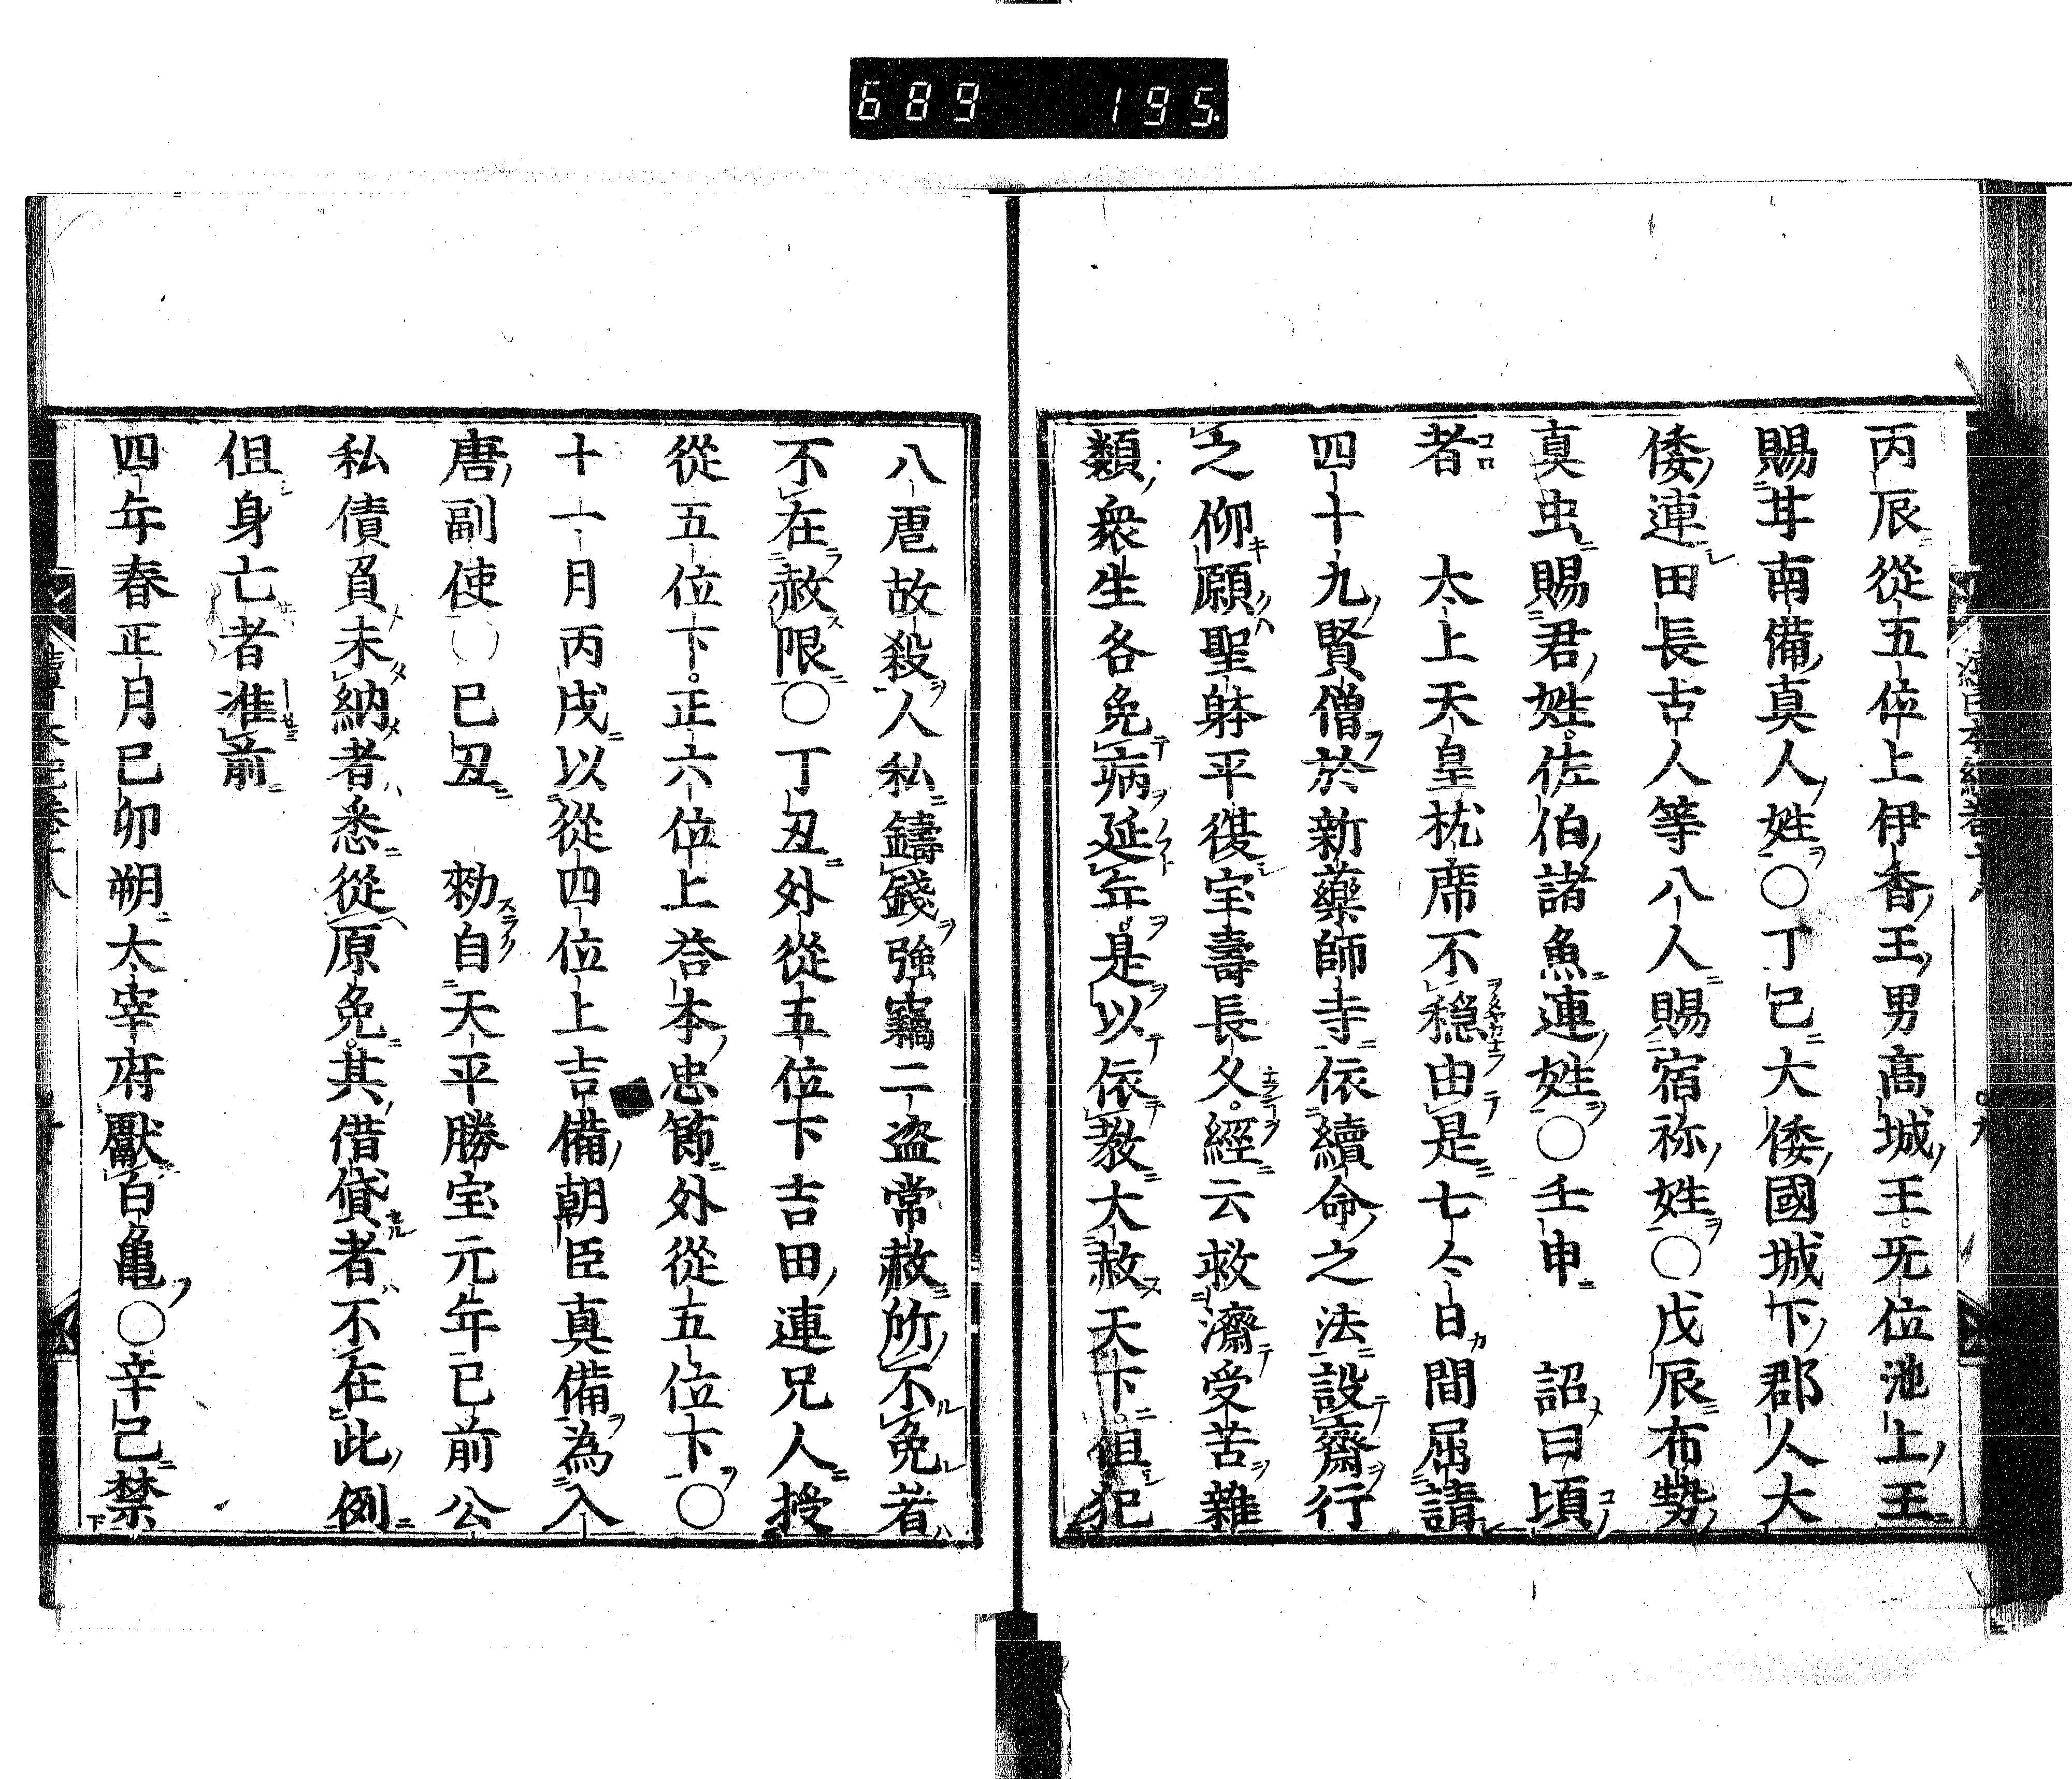 689 195.
丙辰從五位上伊香王男高城王无位池上王
賜甘南備真人姓〇丁巳大倭國城下郡人大
倭連田長古人等八人賜宿祢姓〇戊辰布勢
真虫賜君姓佐伯諸魚連姓〇壬申　詔曰頃
者　太上天皇枕席不穏由是七々日間屈請
四十九賢僧於新藥師寺依續命之法設齋行
之仰願聖躰平復宝壽長久經云救濟受苦雜
類衆生各免病延年是以依教大赦天下但犯
八虐故殺人私鑄錢強竊二盗常赦所不免者
不在赦限〇丁丑外從五位下吉田連兄人授
從五位下正六位上荅本忠節外從五位下〇
十一月丙戌以從四位上吉備朝臣真備為入
唐副使〇己丑　勑自天平勝宝元年已前公
私債負未納者悉從原免其借貸者不在此例
但身亡者准前
四年春正月己卯朔太宰府獻白亀〇辛巳禁